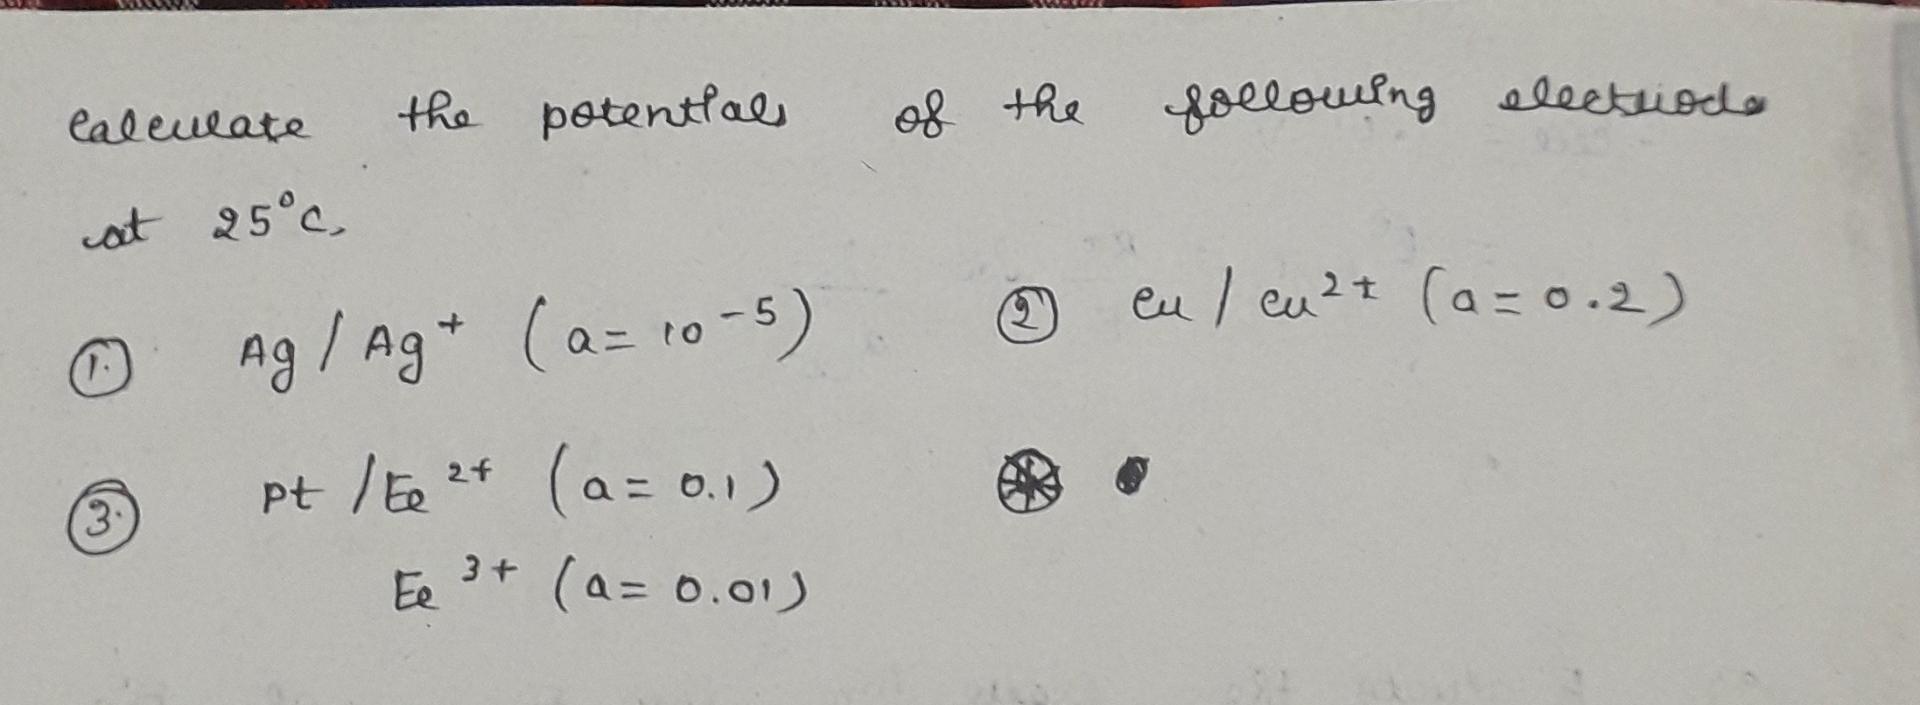 Calculate the potentials of the following electrode
at 25°C.
① Ag / Ag⁺ (a = 10⁻⁵) ② Cu / Cu²⁺ (a = 0.2)
③ Pt / Fe²⁺ (a = 0.1)
Fe³⁺ (a = 0.01)